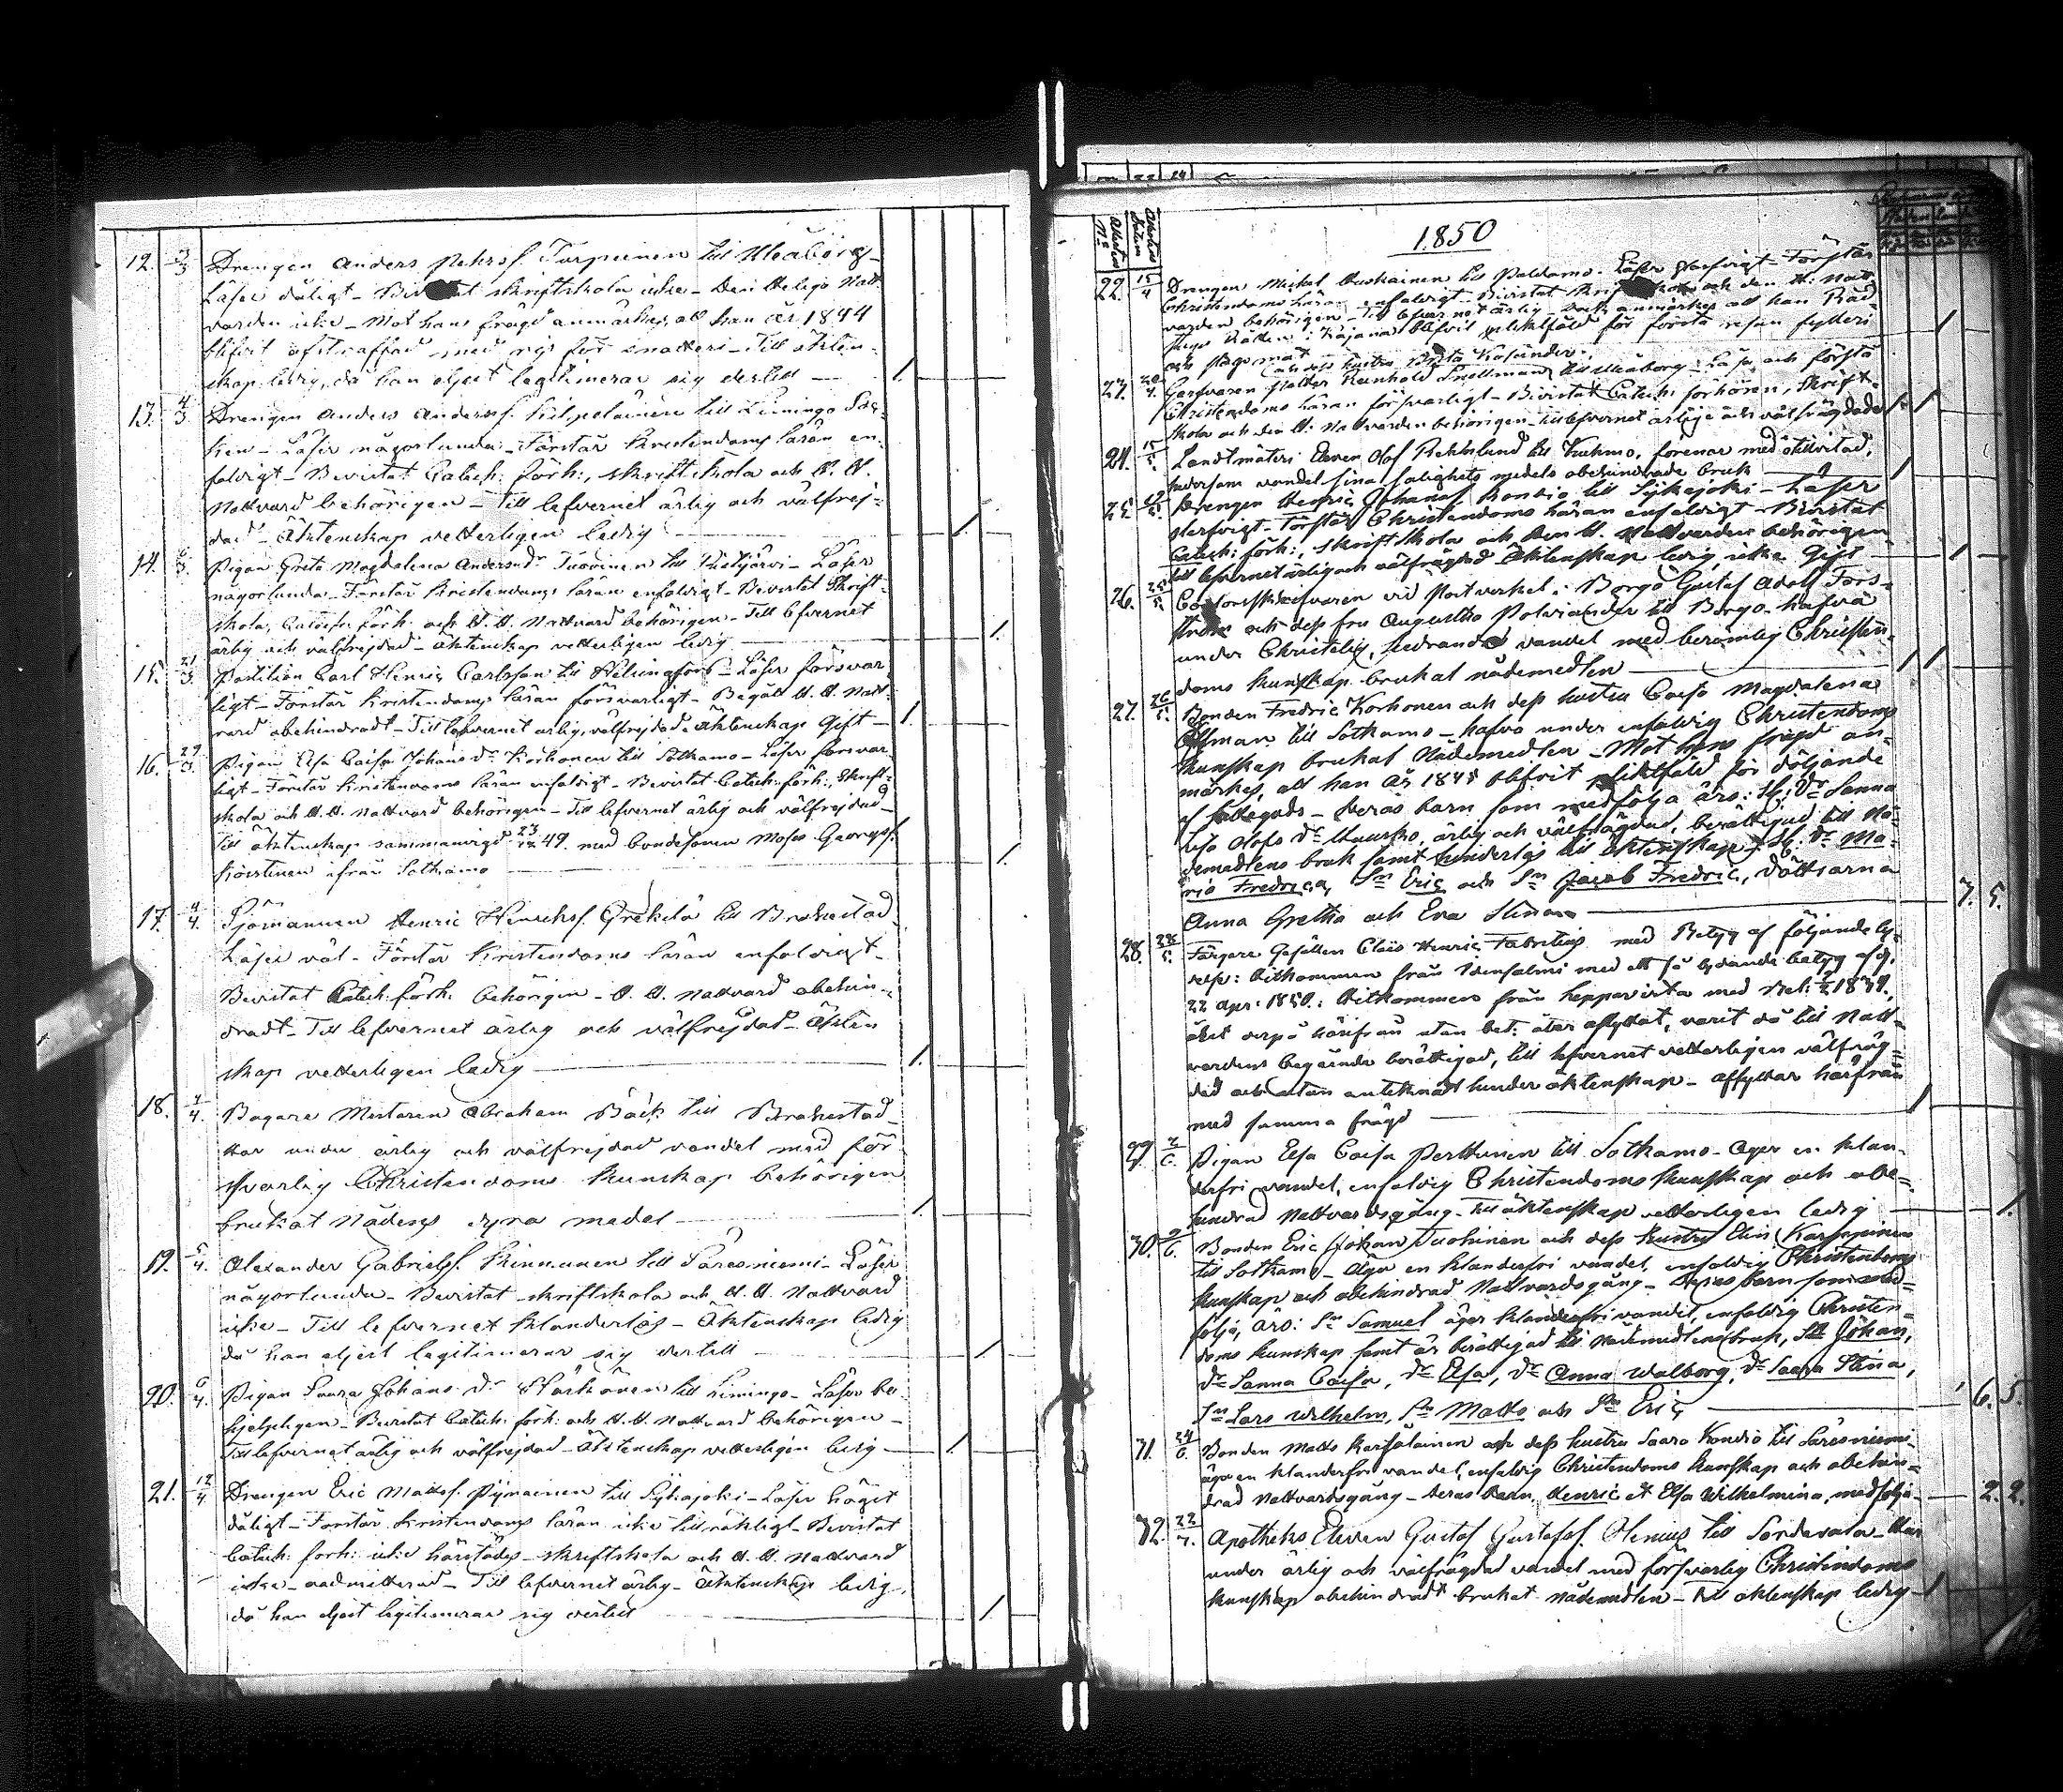 12. 3/3 Drengen Anders Pehrss. Turpeinen till Uleåborg -
Läser dåligt - skriftskola icke - Den Heliga Natt-
varden icke - Mot hans frägd anmärkes, att han år 1844
blifvit afstraffad med ris för snatteri - Till äkten-
skap ledig, då han ehjest legitimerar sig dertill - 1.
13. 4/3 Drengen Anders Anderss. Kilpeläinen till Limingo Soc-
ken - Läser någorlunda - Förstår Kristendoms läran en-
faldigt - Bevistat Catech: förh:, skriftskola och H. H.
Nattvard behörigen - Till lefvernet ärlig och välfrej-
dad - Äktenskap vetterligen ledig - 1
14. 6/3. Pigan Greta Magdalena Andersdr Tuovinen till - Läser
någorlunda - Förstår Kristendoms läran enfaldigt - Bevistat Skrift-
skola, Catech: förh: och H. H. Nattvard behörigen - Till lefvernet
ärlig och välfrejdad - äktenskap vetterligen ledig - 1
15. 21/3 Postilion Carl Henric Carlsson till Helsingfors - Läser försvar-
ligt - Förstår Kristendoms läran försvarligt - Begått H. H. Natt-
vard obehindradt - Till lefvernet ärlig, välfrejdad - äktenskap Gift - 1.
16. 29/3. Pigan Elsa Caisa Johans dr Korhonen till Sotkamo - Läser försvar-
ligt - Förstår Kristendoms läran enfaldigt - Bevistat Catech: förh:, Skrift-
skola och H. H. Nattvard behörigen - Till lefvernet ärlig och välfrejdad -
Till äktenskap sammanvigd 23/12 49. med bondesonen Moses Georgss.
ifrån Sotkamo - 1
17. 4/4. Sjömannen Henric Henricss. Grekelä till Brahestad
Läser väl - Förstår Kristendoms läran enfaldigt -
Bevistat Catech: förh: behörigen - H. H. Nattvard obehin-
dradt - Till lefvernet ärlig och välfrejdad - Äkten
skap vetterligen ledig - 1.
18. 4/4. Bagare Mästaren Abraham Bäck till Brahestad -
Har under ärlig och välfrejdad vandel med för
svarlig Christendoms Kunskap behörigen
brukat Nådens dyra medel - 1.
19. 5/4. Alexander Gabrielss. Kinnunen till Säresniemi - Läser
någorlunda - Bevistat skriftskola och H. H. Nattvard
icke - Till lefvernet klanderlös - Äktenskap ledig
då han ehjest legitimerar sig dertill - 1
20. 6/4. Pigan Saara Johans dr till Limingo - Läser be-
hjelpligen - Bevistat Catech: förh: och H. H. Nattvard behörigen -
Till lefvernet ärlig och välfrejdad - Äktenskap vetterligen ledig - 1
21. 12/4 Drengen Eric Matss. Pyrnäinen till Sijkajoki - Läser högst
dåligt - Förstår Kristendoms läran icke tillräkligt - Bevistat
Catech: förh: icke härstädes - skriftskola och H. H. Nattvard
icke - admitterad - Till lefvernet ärlig - Äktenskap ledig,
då han ehjest legitimerar sig dertill - 1
1850
22. 15/4 Drengen Mikel till Paldamo - Läser slarfvigt - Förstår
Christendoms läran enfaldigt - Bivistat Skriftskola och den H. Natt
varden behörigen - Till lefvernet ärlig - Dock anmärkes att han Råd
stugu Rätten i Kajana blifvit sakfäld för första resan fylleri
och 1
(och dess hustru Brita Kosander.
23. 20/4. Garfvaren Petter Reinhold Snellman till Uleåborg - Läser och förstå
Christendoms läran försvarligt - Bivistat Catech: förhören, Skrift-
skola och den H: Nattvarden behörigen - till lefvernet ärlige och välfrägdade 1 1
24. 15/5. Landtmäteri Eleven Olof Rehnlund till Kuhmo, förenar med otillvitad,
hedersam vandel sina salighets medels obehindrade bruk - 1
25. Drengen Henric Johanss. Kondio till Sijkajoki - Läser
slarfvigt - Förstår Christendoms läran enfaldigt - Bivistat
Catech: förh:, Skriftskola och Den H. Nattvarden behörigen
till lefvernet ärlig och välfrägdad Äktenskap ledig, icke Gift - 1
26. 25/5. vid Postverket i Borgo Gustaf Adolf Fors-
ström och dess fru Augustha Polviander till Borgo - hafva
under Christelig, hedrande vandel med berömlig Christen-
doms kunskap brukat nådemedlen - 1 1
27. 26/5. Bonden Fredric Korhonen och dess hustru Caisa Magdalena
till Sotkamo - hafva under enfaldig Christendoms
kunskap brukat Nådemedlen - Mot hans frägd an-
märkes, att han År 1845 blifvit sakfäld för döljande
af - deras barn som medfölja äro: Dr Sanna
Lisa Olofs Dr , ärlig och välfrägdad, berättigad till Nå-
demedlens bruk samt hinderlös till äktenskap, Dr Ma-
ria Fredrica, Sn Eric och Sn Jacob Fredric, Döttrarna
Anna Gretha och Eva Stina - 7. 5.
28. 28/5. Färgare Gesällen Claes Henric Fabritius med Betyg af följande ly-
delse: Hitkommen från Idensalmi med ett så lydande betyg af d.
22 Apr: 1850: Hitkommen från Leppävirta med Bet:
året derpå härifrån utan bet: åter aflyttat, varit då till Natt-
vardens begående berättigad, till lefvernet vetterligen välfräg-
dad och utan antecknadt hinder äktenskap - afflyttar härifrån
med samma frägd - 1
29. 2/6. Pigan Elsa Caisa Perttunen till Sotkamo - äger en klan-
derfri vandel, enfaldig Christendoms kunskap och obe-
hindrad Nattvardsgång - till äktenskap vetterligen ledig - 1.
30. 9/6. Bonden Eric Johan Tuohinen och dess hustru Elin Karppinen
till Sotkamo - äga en klanderfri vandel, enfaldig Christendoms
kunskap och obehindrad Nattvardsgång - deras barn som med-
följa, äro: Sn Samuel äger klanderfri vandel, enfaldig Christen-
doms kunskap samt är berättigad till nådemedlens bruk, Sn Johan,
Dr Sanna Caisa, Dr Elsa, Dr Anna Walborg, Dr Saara Stina,
Sn Lars Wilhelm, Sn Matts och Sn Eric - 6. 5.
31. 24/6. Bonden Matts Karjalainen och dess hustru Saara Kondio till Säresniemi -
äga en klanderfri vandel, enfaldig Christendoms kunskap och obehin-
drad Nattvardsgång - deras barn, Henric et Elsa Wilhelmina, medfölja - 2. 2.
32. 22/7. Apotheks Eleven Gustaf Gustafss. till Sordavala - Har
under ärlig och välfrägdad vandel med försvarlig Christendoms
kunskap obehindradt brukat nådemedlen - till äktenskap ledig - 1